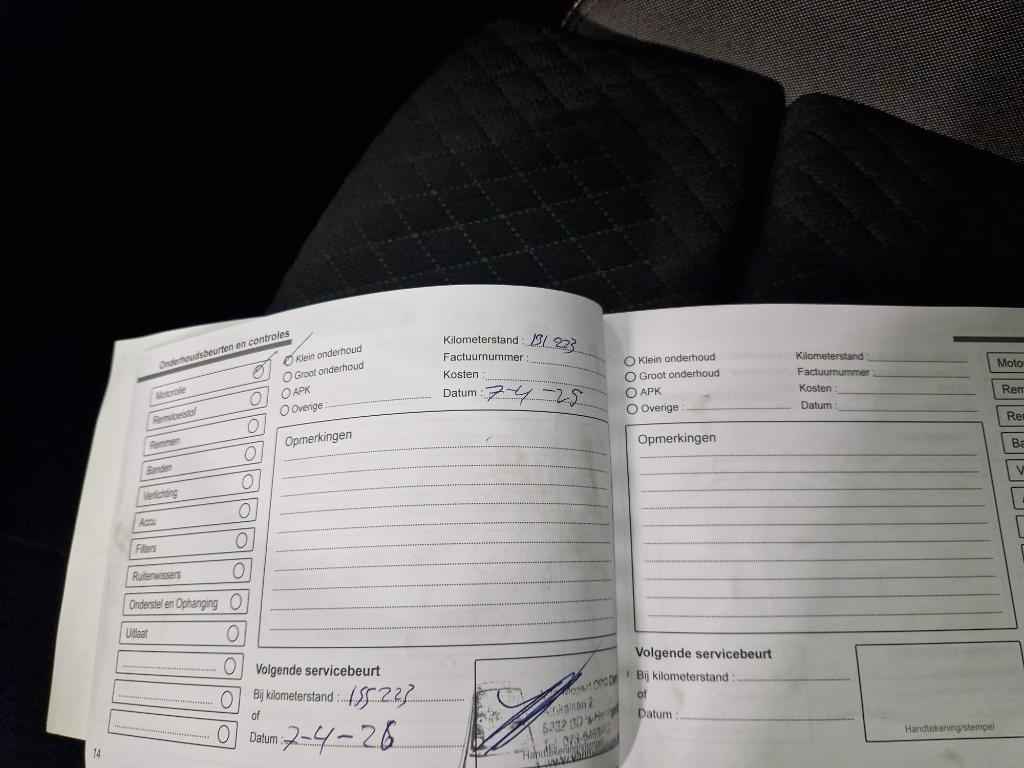 Onderhoudsbeurten en controles
Motorolie
Remvloeistof
Remmen
Banden
Verlichting
Accu
Filters
Ruitenwissers
Onderstel en Ophanging
Uitlaat
Klein onderhoud
Groot onderhoud
APK
Overige
Kilometerstand :
Factuurnummer :
Kosten :
Datum : 7-4-25
Opmerkingen
Volgende servicebeurt
Bij kilometerstand : 155 223
of
Datum : 7-4-26
14
Klein onderhoud
Groot onderhoud
APK
Overige :
Kilometerstand :
Factuurnummer :
Kosten :
Datum :
Opmerkingen
Volgende servicebeurt
Bij kilometerstand :
of
Datum :
Handtekening/stempel